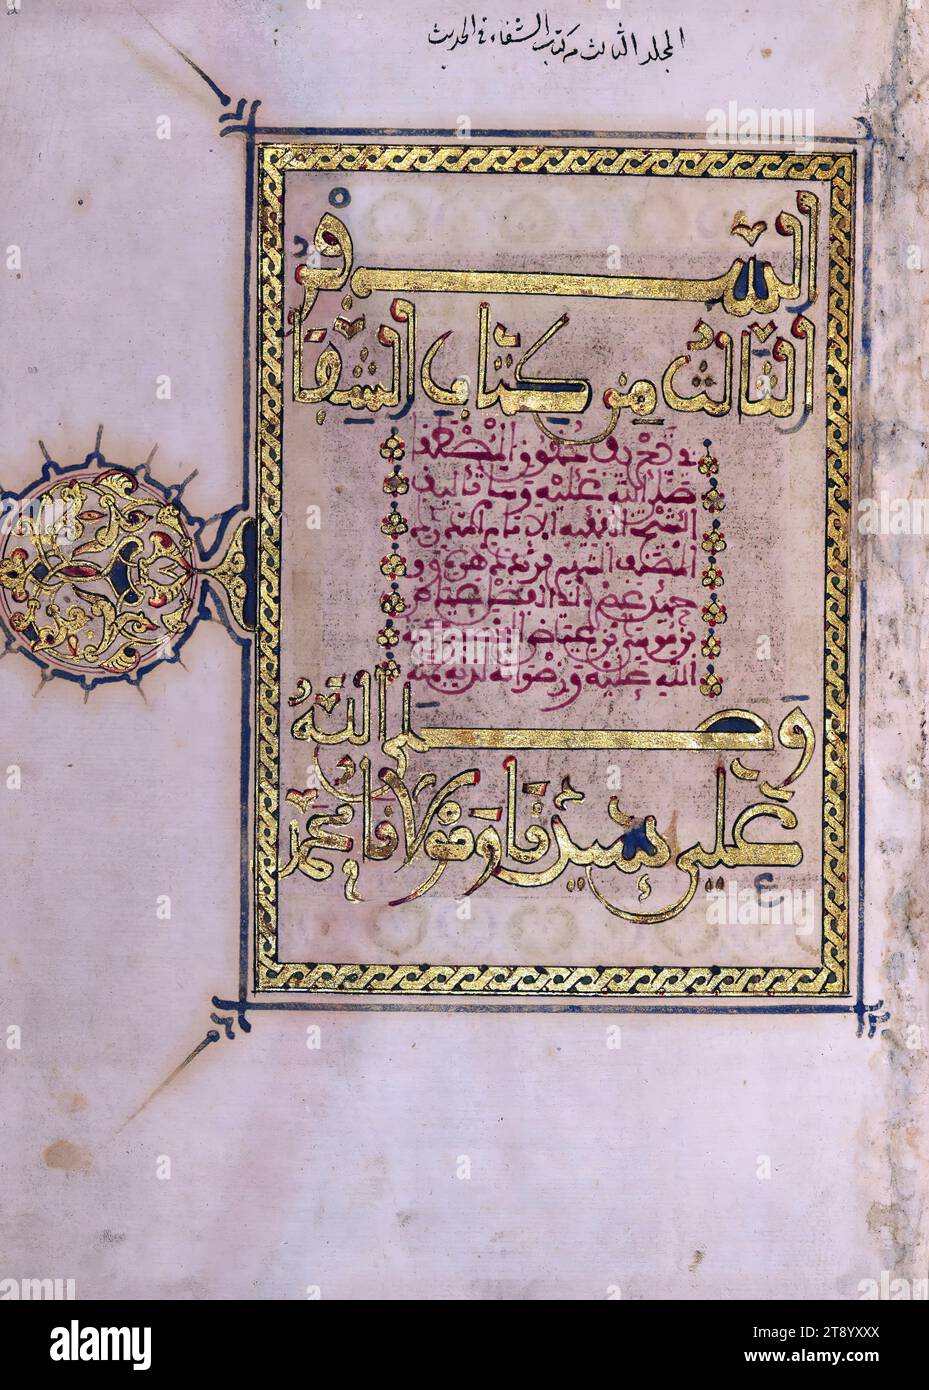 المجلد الثالث من كتاب الشفاء في الحديث
السفر
الثالث من كتاب الشفا
في تعريف حقوق المصطفى
صلى الله عليه وسلم تأليف
الشيخ الفقيه الإمام
عياض
بن موسى بن عياض
الله عليه ورضوانه
وصلى الله
على سيدنا ومولانا محمد
alamy
Image ID: 2T8YXXX
www.alamy.com